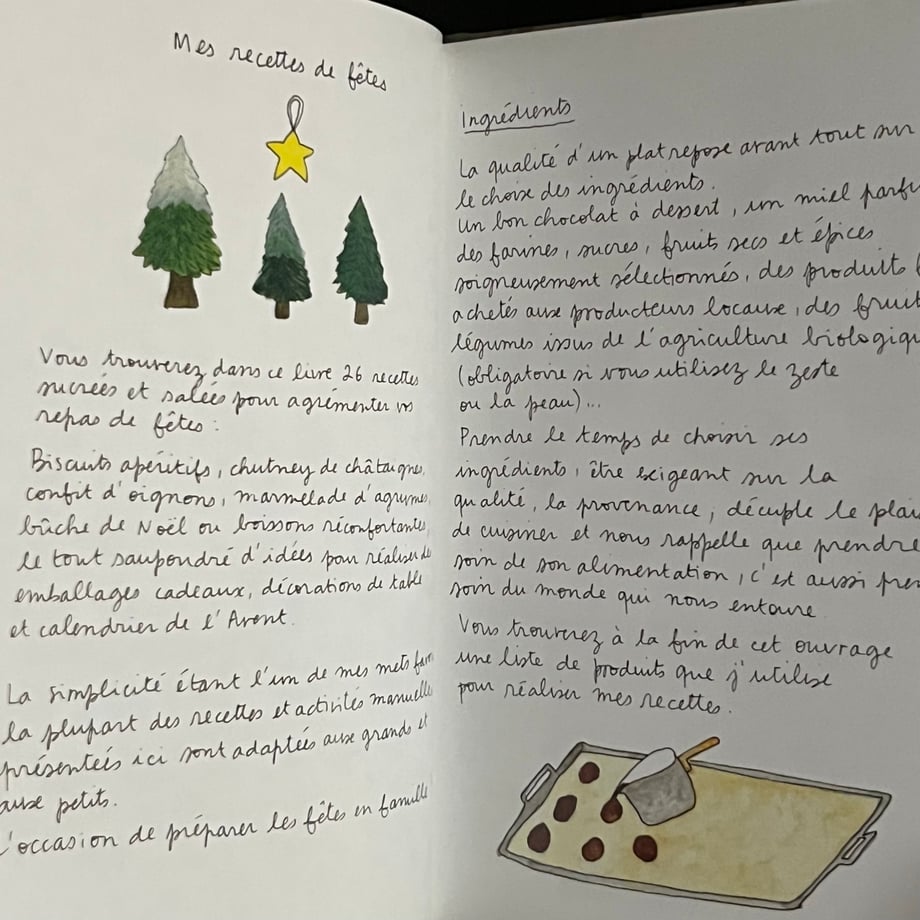 Mes recettes de fêtes
Vous trouverez dans ce livre 26 recettes
sucrées et salées pour agrémenter vos
repas de fêtes :
Biscuits apéritifs, chutney de châtaignes,
confit d'oignons, marmelade d'agrumes,
bûche de Noël ou boissons réconfortantes,
le tout saupoudré d'idées pour réaliser des
emballages cadeaux, décoration de table
et calendrier de l'Avent.
La simplicité étant l'un de mes mets
la plupart des recettes et activités manuelles
présentées ici sont adaptées aux grands et
aux petits.
L'occasion de préparer les fêtes en famille
Ingrédients
La qualité d'un plat repose avant tout sur
le choix des ingrédients.
Un bon chocolat à dessert, un miel parfu
des farines, sucres, fruits secs et épices
soigneusement sélectionnés, des produits
achetés aux producteurs locaux, des fruit
légumes issus de l'agriculture biologiqu
(obligatoire si vous utilisez le zeste
ou la peau)...
Prendre le temps de choisir ses
ingrédients, être exigeant sur la
qualité, la provenance, décuple le plai
de cuisiner et nous rappelle que prendre
soin de son alimentation, c'est aussi pren
soin du monde qui nous entoure
Vous trouverez à la fin de cet ouvrage
une liste de produits que j'utilise
pour réaliser mes recettes.